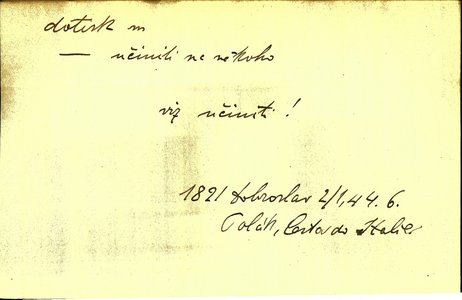 dotisk m
— učiniti na někoho
viz učiniti!
1821 Dobroslav 2/1, 44. 6.
Polák, Cesta do Italie